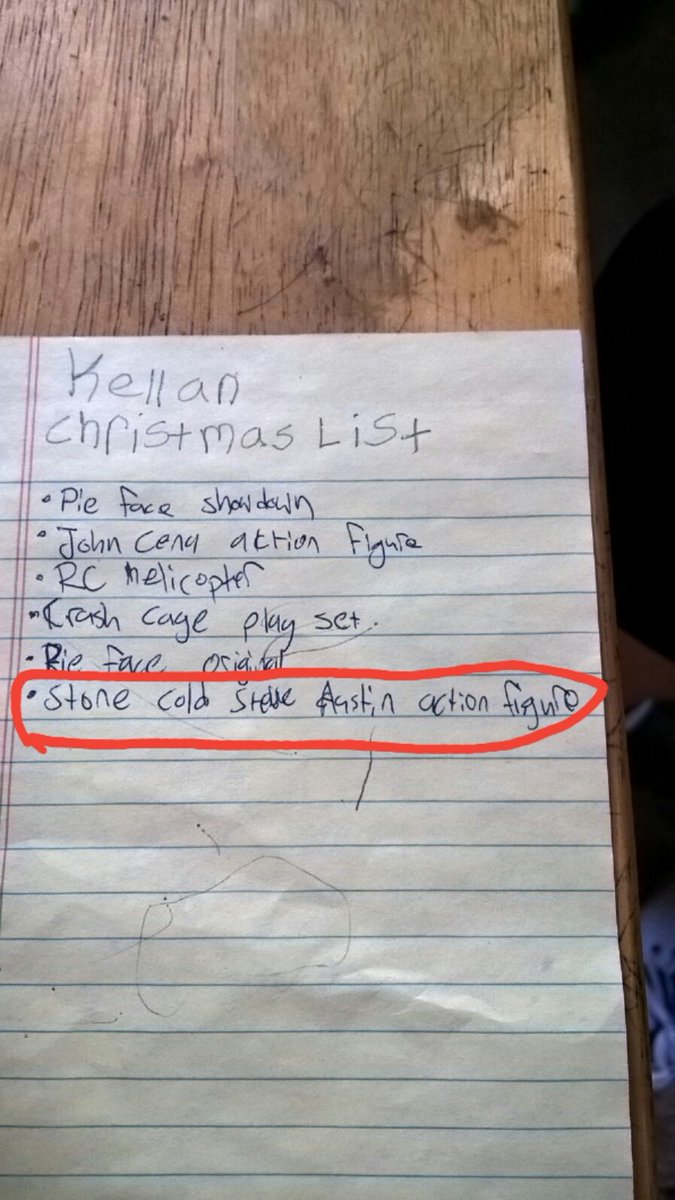 Kellan
Christmas List
• Pie face showdown
• John Cena action figure
• RC Helicopter
• Crash cage play set.
• Pie face original
• Stone cold Steve Austin action figure